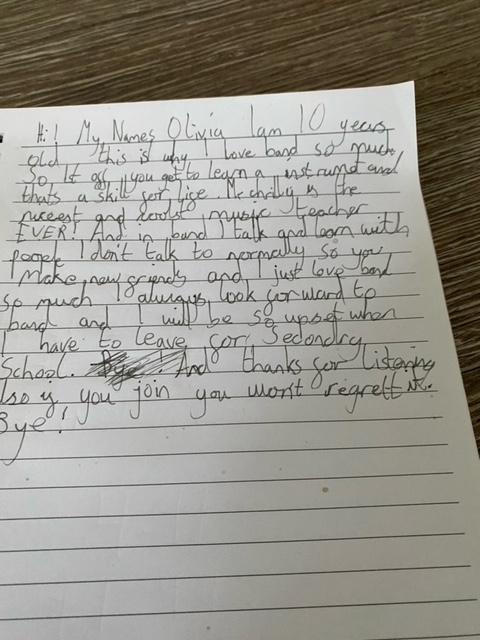 Hi! My Names Olivia I am 10 years
old this is why I love band so much.
So 1st off you get to learn a instrumt and
thats a skill for life. Mr is the
niceest and music teacher
EVER! And in band I talk and learn with
people I don't talk to normally so you
Make new friends and I just love band
so much I always look forward to
band and I will be so upset when
I have to leave for Secondry
School. And thanks for listening
so if you join you won't regrett it.
Bye!